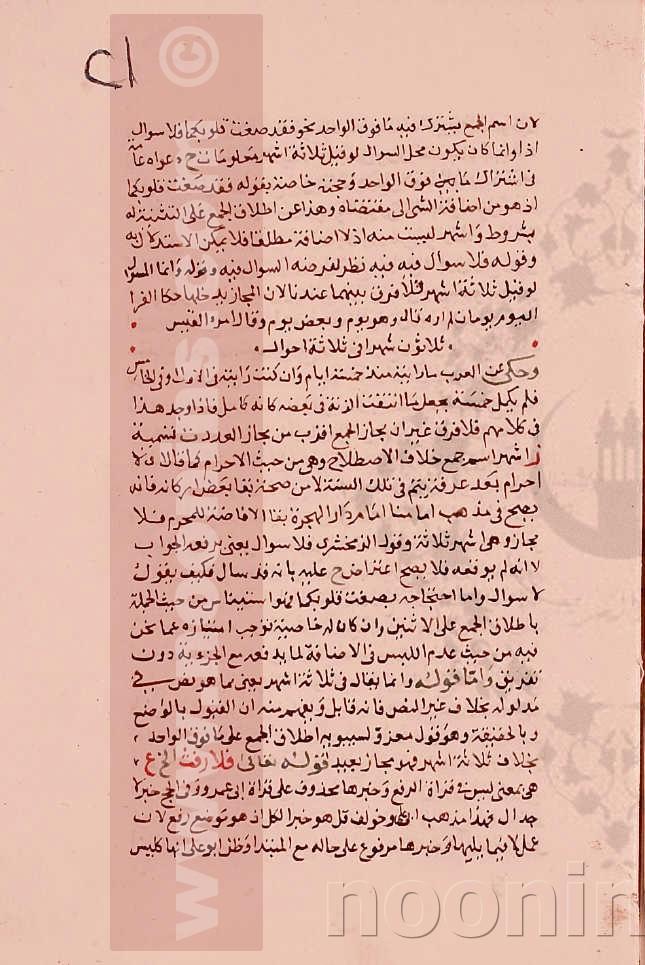 لان اسم الجمع يشترك فيه ما فوق الواحد نحو فقد صغت قلوبكما فلا سوال
اذا وانما كان يكون محل السوال لو قيل ثلاثة اشهر معلومات ح دعواه عامة
في اشتراك ما فوق الواحد وحجته خاصة بقوله فقد صغت قلوبكما
اذ هو من اضافة الشي الى مقتضاه وهذا عن اطلاق الجمع على التثنية له
شروط واشهر ليست منه اذ لا اضافة مطلقا فلا يمكن الاستدلال به
وقوله فلا سوال فيه فيه نظر لفرضه السوال فيه وقوله وانما السوال
لو قيل ثلاثة اشهر فلا فرق بينهما عندنا لان المجاز يدخلها حكا الفرا
اليوم يومان لم اره قال وهو يوم وبعض يوم وقال امرء القيس
ثلاثون شهرا في ثلاثة احوال
وحكي عن العرب ما رايته منذ خمسة ايام وان كنت رايته في الاول وفي الخامس
فلم يكمل خمسة بجعل ما اتفقت الرية في بعضه كانه كامل فاذا وجد هذا
في كلامهم فلا فرق غير ان مجاز الجمع اقرب من مجاز العدد تسمية
اشهر اسم جمع خلاف الاصطلاح وهي من حيث الاحرام كما قال لا
احرام بعد عرفة يتم في تلك السنة لا من صحة بقا بعض اركانه فانه
يصح في مذهب امامنا امام دار الهجرة بقا الافاضة للمحرم فلا
مجاز وهي اشهر ثلاثة وقول الزمخشري فلا سوال يعني يرفعه الجواب
لا انه لم يوقعه فلا يصح اعتراض ح عليه بانه قد سال فكيف يقول
لا سوال واما احتجاجه بصغت قلوبكما فهو استيناس من حيث الجملة
باطلاق الجمع على الاثنين وان كان له خاصية توجب امتيازه عما نحن
فيه من حيث عدم اللبس في الاضافة لما يدفعه مع الجزءية دون
تفريق واما قوله وانما يقال في ثلاثة اشهر يعني مما هو نص في
مدلوله بخلاف غير النص فانه قابل ويفهم منه ان القبول بالوضع
وبالحقيقة وهو قول معزو لسيبويه اطلاق الجمع على ما فوق الواحد
بخلاف ثلاثة اشهر فهو مجاز بعيد قوله تعالى فلا رفث الخ ع
هي بمعنى ليس في قراة الرفع وخبرها محذوف على قراة ابي عمرو وفي الحج خبر لا
جدال فهذا مذهب ابي علي وخولف قل هو خبر الكل اذ هو موضع رفع لان
عمل لا فيما يليها وخبرها مرفوع على حاله مع المبتدا وظن ابو علي انها كليس
noonin